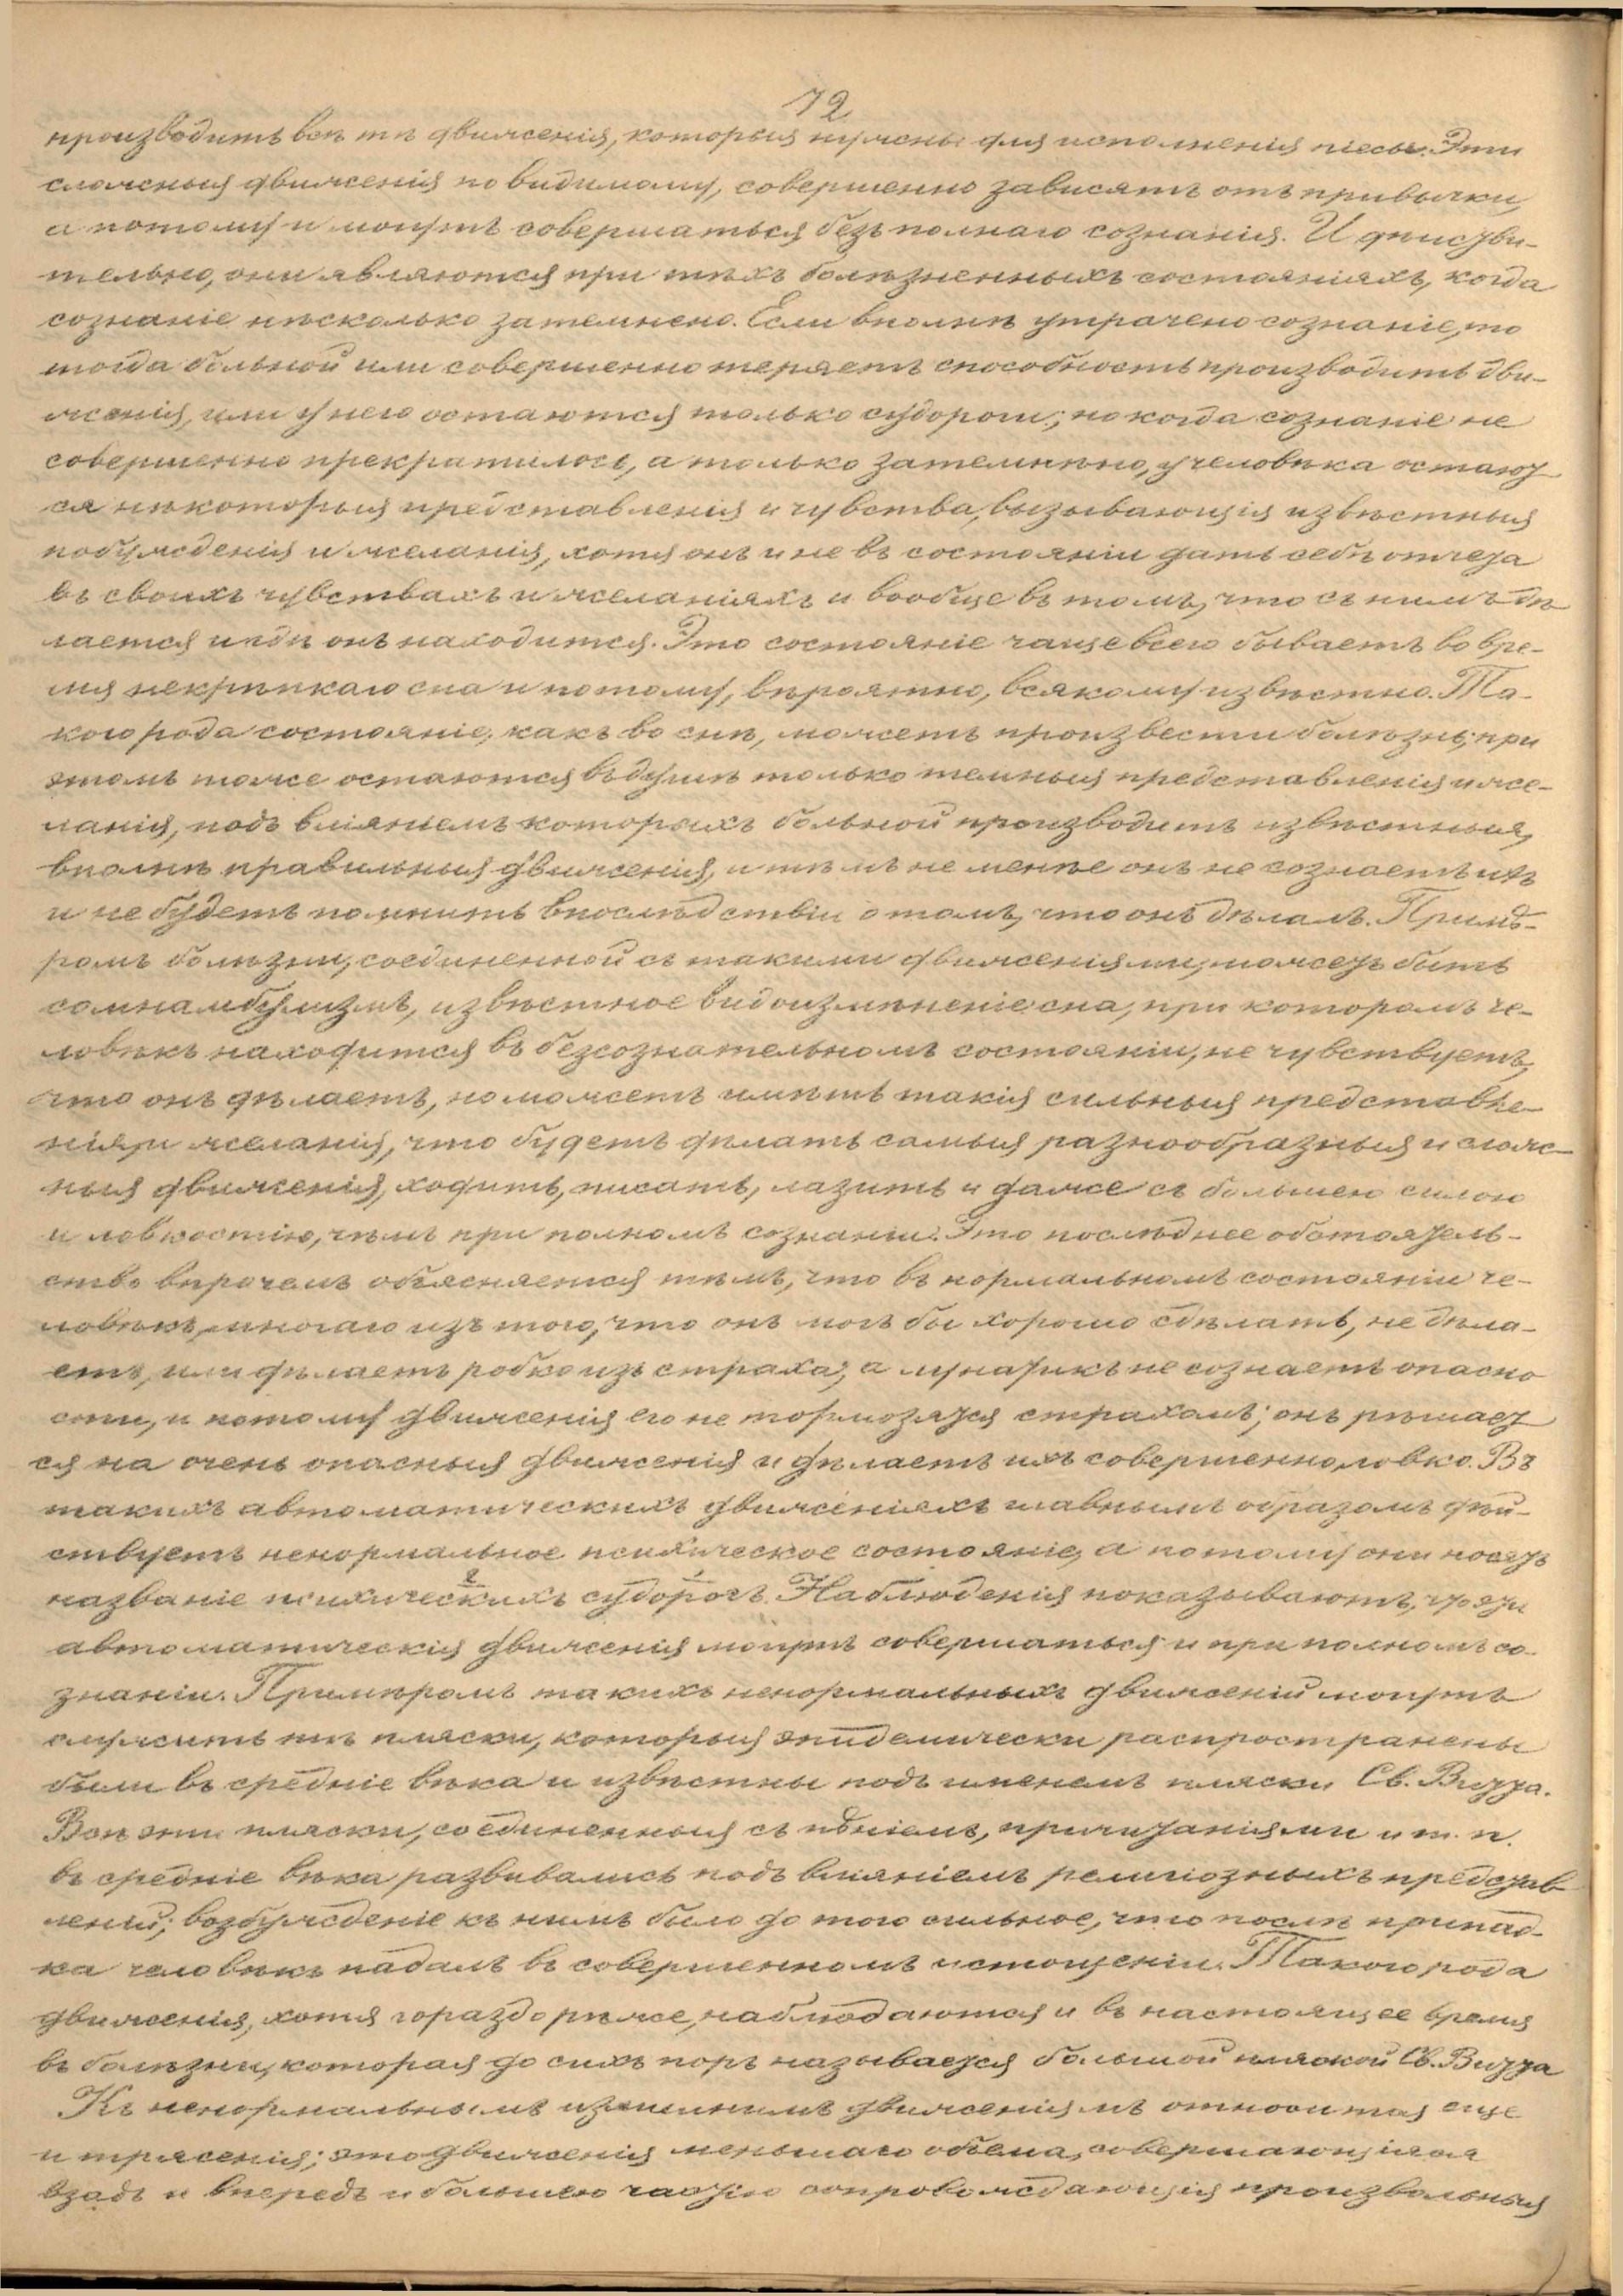 72
производить всѣ тѣ движенія, которыя нужны для исполненія піесы. Эти
сложныя движенія по видимому, совершенно зависятъ отъ привычки,
а потому и могутъ совершаться безъ полнаго сознанія. И дѣйстви-
тельно, они являются при тѣхъ болѣзненныхъ состояніяхъ, когда
сознаніе нѣсколько затемнено. Если вполнѣ утрачено сознаніе, то
тогда больной или совершенно теряетъ способность производить дви-
женія, или у него остаются только судороги; но когда сознаніе не
совершенно прекратилось, а только затемнѣно, у человѣка остают
ся нѣкоторыя представленія и чувства, вызывающія извѣстныя
побужденія и желанія, хотя онъ и не въ состояніи дать себѣ отчета
въ своихъ чувствахъ и желаніяхъ и вообще въ томъ, что съ нимъ дѣ
лается и гдѣ онъ находится. Это состояніе чаще всего бываетъ во вре-
мя некрѣпкаго сна и потому, вѣроятно, всякому извѣстно. Та-
кого рода состояніе, какъ во снѣ, можетъ произвести болѣзнь; при
этомъ тоже остаются въ душѣ только темныя представленія и же-
ланія, подъ вліяніемъ которыхъ больной производитъ извѣстныя,
вполнѣ правильныя движенія, и тѣмъ не менѣе онъ не сознаетъ ихъ
и не будетъ помнить впослѣдствіи о томъ, что онъ дѣлалъ. Примѣ-
ромъ болѣзни, соединенной съ такими движеніями, можетъ быть
сомнамбулизмъ, извѣстное видоизмѣненіе сна, при которомъ че-
ловѣкъ находится въ безсознательномъ состояніи, не чувствуетъ,
что онъ дѣлаетъ, но можетъ имѣть такія сильныя представле-
нія и желанія, что будетъ дѣлать самыя разнообразныя и слож-
ныя движенія, ходить, писать, лазить и даже съ большею силою
и ловкостію, чѣмъ при полномъ сознаніи. Это послѣднее обстоятель-
ство впрочемъ объясняется тѣмъ, что въ нормальномъ состояніи че-
ловѣкъ, многаго изъ того, что онъ могъ бы хорошо сдѣлать, не дѣла-
етъ, или дѣлаетъ робко изъ страха; а лунатикъ не сознаетъ опасно
сти, и потому движенія его не тормозятся страхомъ; онъ рѣшает
ся на очень опасныя движенія и дѣлаетъ ихъ совершенно ловко. Въ
такихъ автоматическихъ движеніяхъ главнымъ образомъ дѣй-
ствуетъ ненормальное психическое состояніе, а потому они носятъ
названіе психическихъ судорогъ. Наблюденія показываютъ, что эти
автоматическія движенія могутъ совершаться и при полномъ со-
знаніи. Примѣромъ такихъ ненормальныхъ движеній могутъ
служить тѣ пляски, которыя эпидемически распространены
были въ средніе вѣка и извѣстны подъ именемъ пляски Св. Витта.
Всѣ эти пляски, соединенныя съ пѣніемъ, причитаніями и т. п.
въ средніе вѣка развивались подъ вліяніемъ религіозныхъ представ
леній; возбужденіе къ нимъ было до того сильное, что послѣ припад-
ка человѣкъ падалъ въ совершенномъ истощеніи. Такого рода
движенія, хотя гораздо рѣже, наблюдаются и въ настоящее время
въ болѣзни, которая до сихъ поръ называется большой пляской Св. Витта
Къ ненормальнымъ движеніямъ относится еще
и трясенія; это движенія меньшаго объема, совершающіяся
взадъ и впередъ и большею частію сопровождающія произвольныя